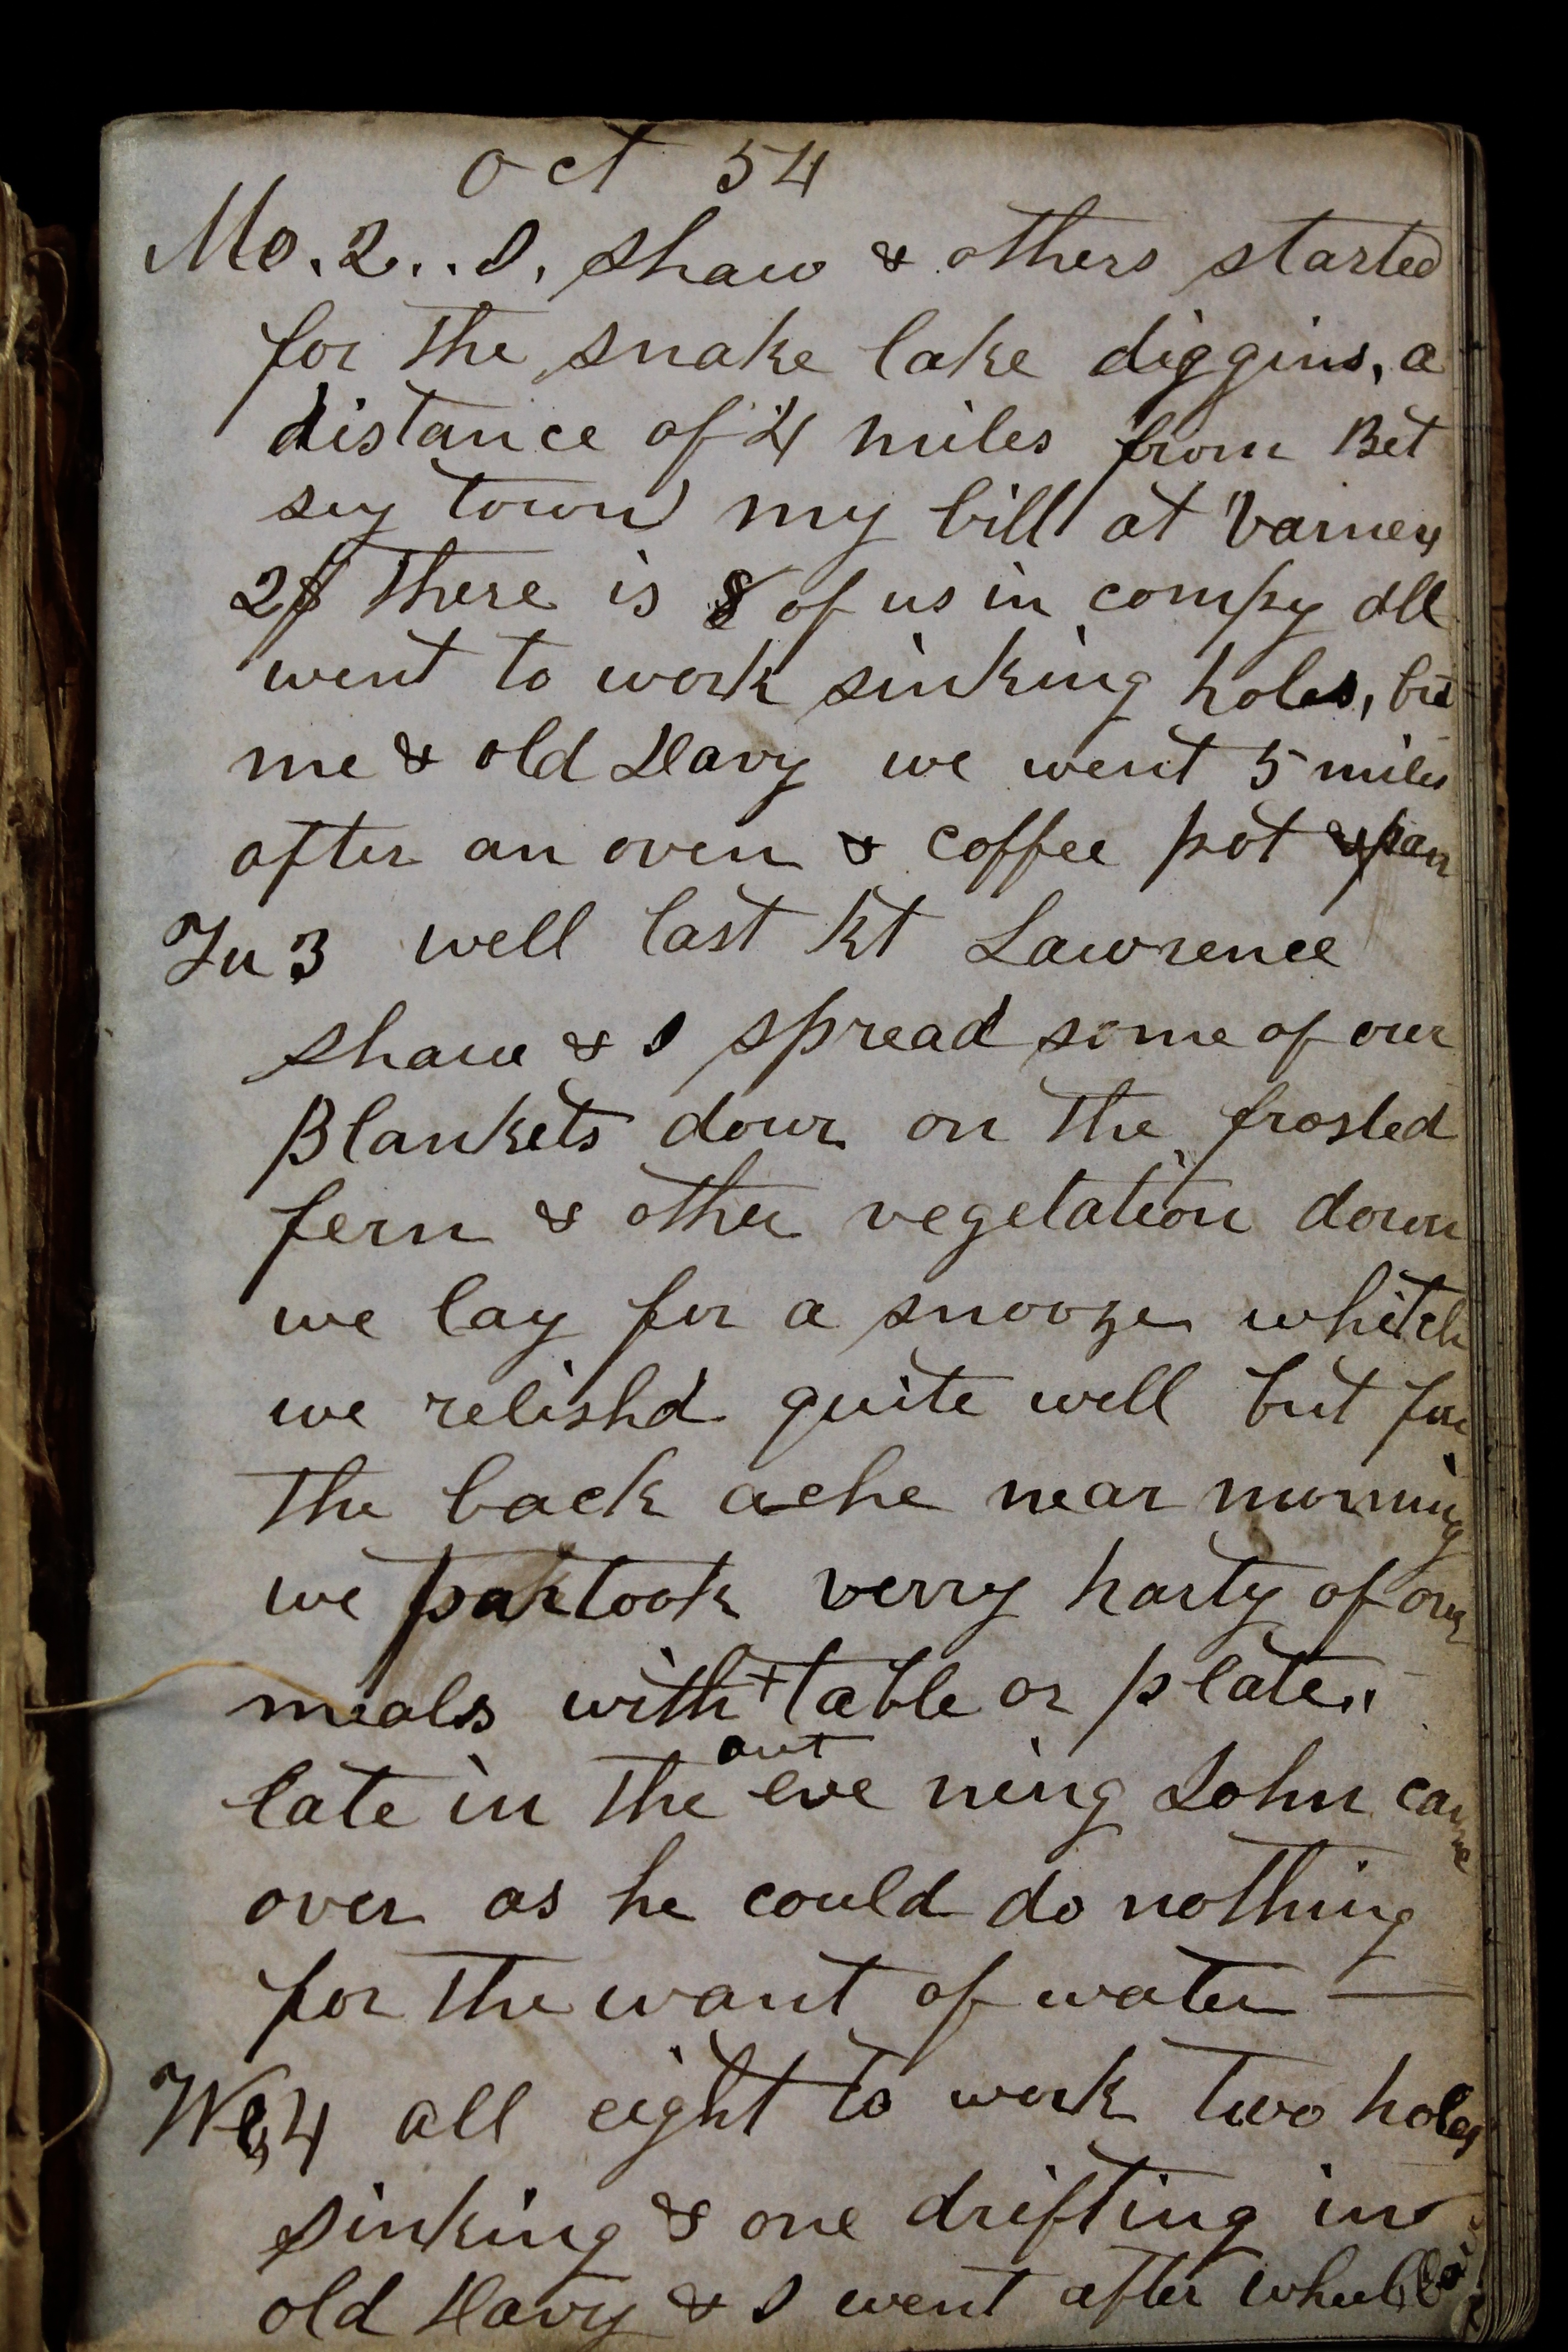 Oct 54
Mo. 2.. I, Shaw & others started
for the snake lake diggins, a
distance of 4 miles from Bet
sy town my bill at Varney
2$ There is 8 of us in compy all
went to work sinking holes, but
me & old Davy we went 5 miles
after an oven & coffee pot & pan
Tu 3 well last nt Lawrence
Shaw & I spread some of our
Blankets down on the frosted
fern & other vegetation down
we lay for a snooze whitch
we relishd quite well but for
the back ache near morning
we partook verry harty of our
meals with + table or plate..
out
late in the eve ning John came
over as he could do nothing
for the want of water —
We, 4 all eight to work two holes
sinking & one drifting in
old Davy & I went after